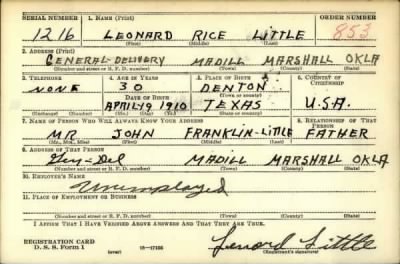 SERIAL NUMBER 1. NAME (Print) ORDER NUMBER
1216 LEONARD RICE LITTLE 853
(First) (Middle) (Last)
2. ADDRESS (Print)
GENERAL-DELIVERY MADILL MARSHALL OKLA
(Number and street or R. F. D. number) (Town) (County) (State)
3. TELEPHONE 4. AGE IN YEARS 5. PLACE OF BIRTH 6. COUNTRY OF CITIZENSHIP
NONE 30 DENTON
DATE OF BIRTH (Town or county)
APRIL 19 1910 TEXAS U.S.A.
(Exchange) (Number) (Mo.) (Day) (Yr.) (State or country)
7. NAME OF PERSON WHO WILL ALWAYS KNOW YOUR ADDRESS 8. RELATIONSHIP OF THAT PERSON
MR JOHN FRANKLIN-LITTLE FATHER
(Mr., Mrs., Miss) (First) (Middle) (Last)
9. ADDRESS OF THAT PERSON
Gen-Del MADILL MARSHALL OKLA
(Number and street or R. F. D. number) (Town) (County) (State)
10. EMPLOYER'S NAME
Unemployed
11. PLACE OF EMPLOYMENT OR BUSINESS
(Number and street or R. F. D. number) (Town) (County) (State)
I AFFIRM THAT I HAVE VERIFIED ABOVE ANSWERS AND THAT THEY ARE TRUE.
REGISTRATION CARD
D. S. S. Form 1 (over) 16—17105 Lenord Little
(Registrant's signature)